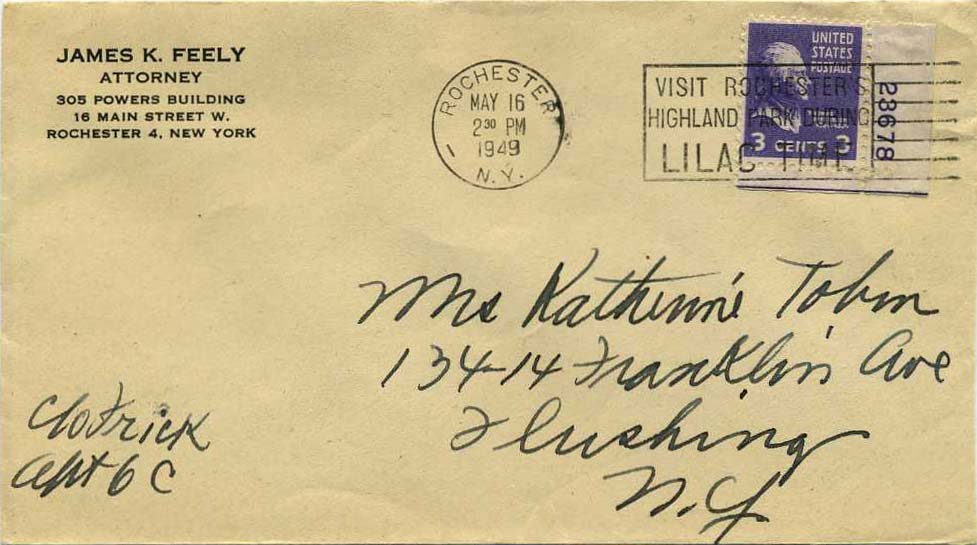 JAMES K. FEELY
ATTORNEY
305 POWERS BUILDING
16 MAIN STREET W.
ROCHESTER 4, NEW YORK
ROCHESTER
MAY 16
2 30 PM
1949
N.Y.
1
VISIT ROCHESTER'S
HIGHLAND PARK DURING
LILAC TIME
UNITED
STATES
POSTAGE
3 CENTS 3
23678
Mrs Katherine Tobin
134-14 Franklin Ave
Flushing
N.Y
c/o Frick
Apt 6 C